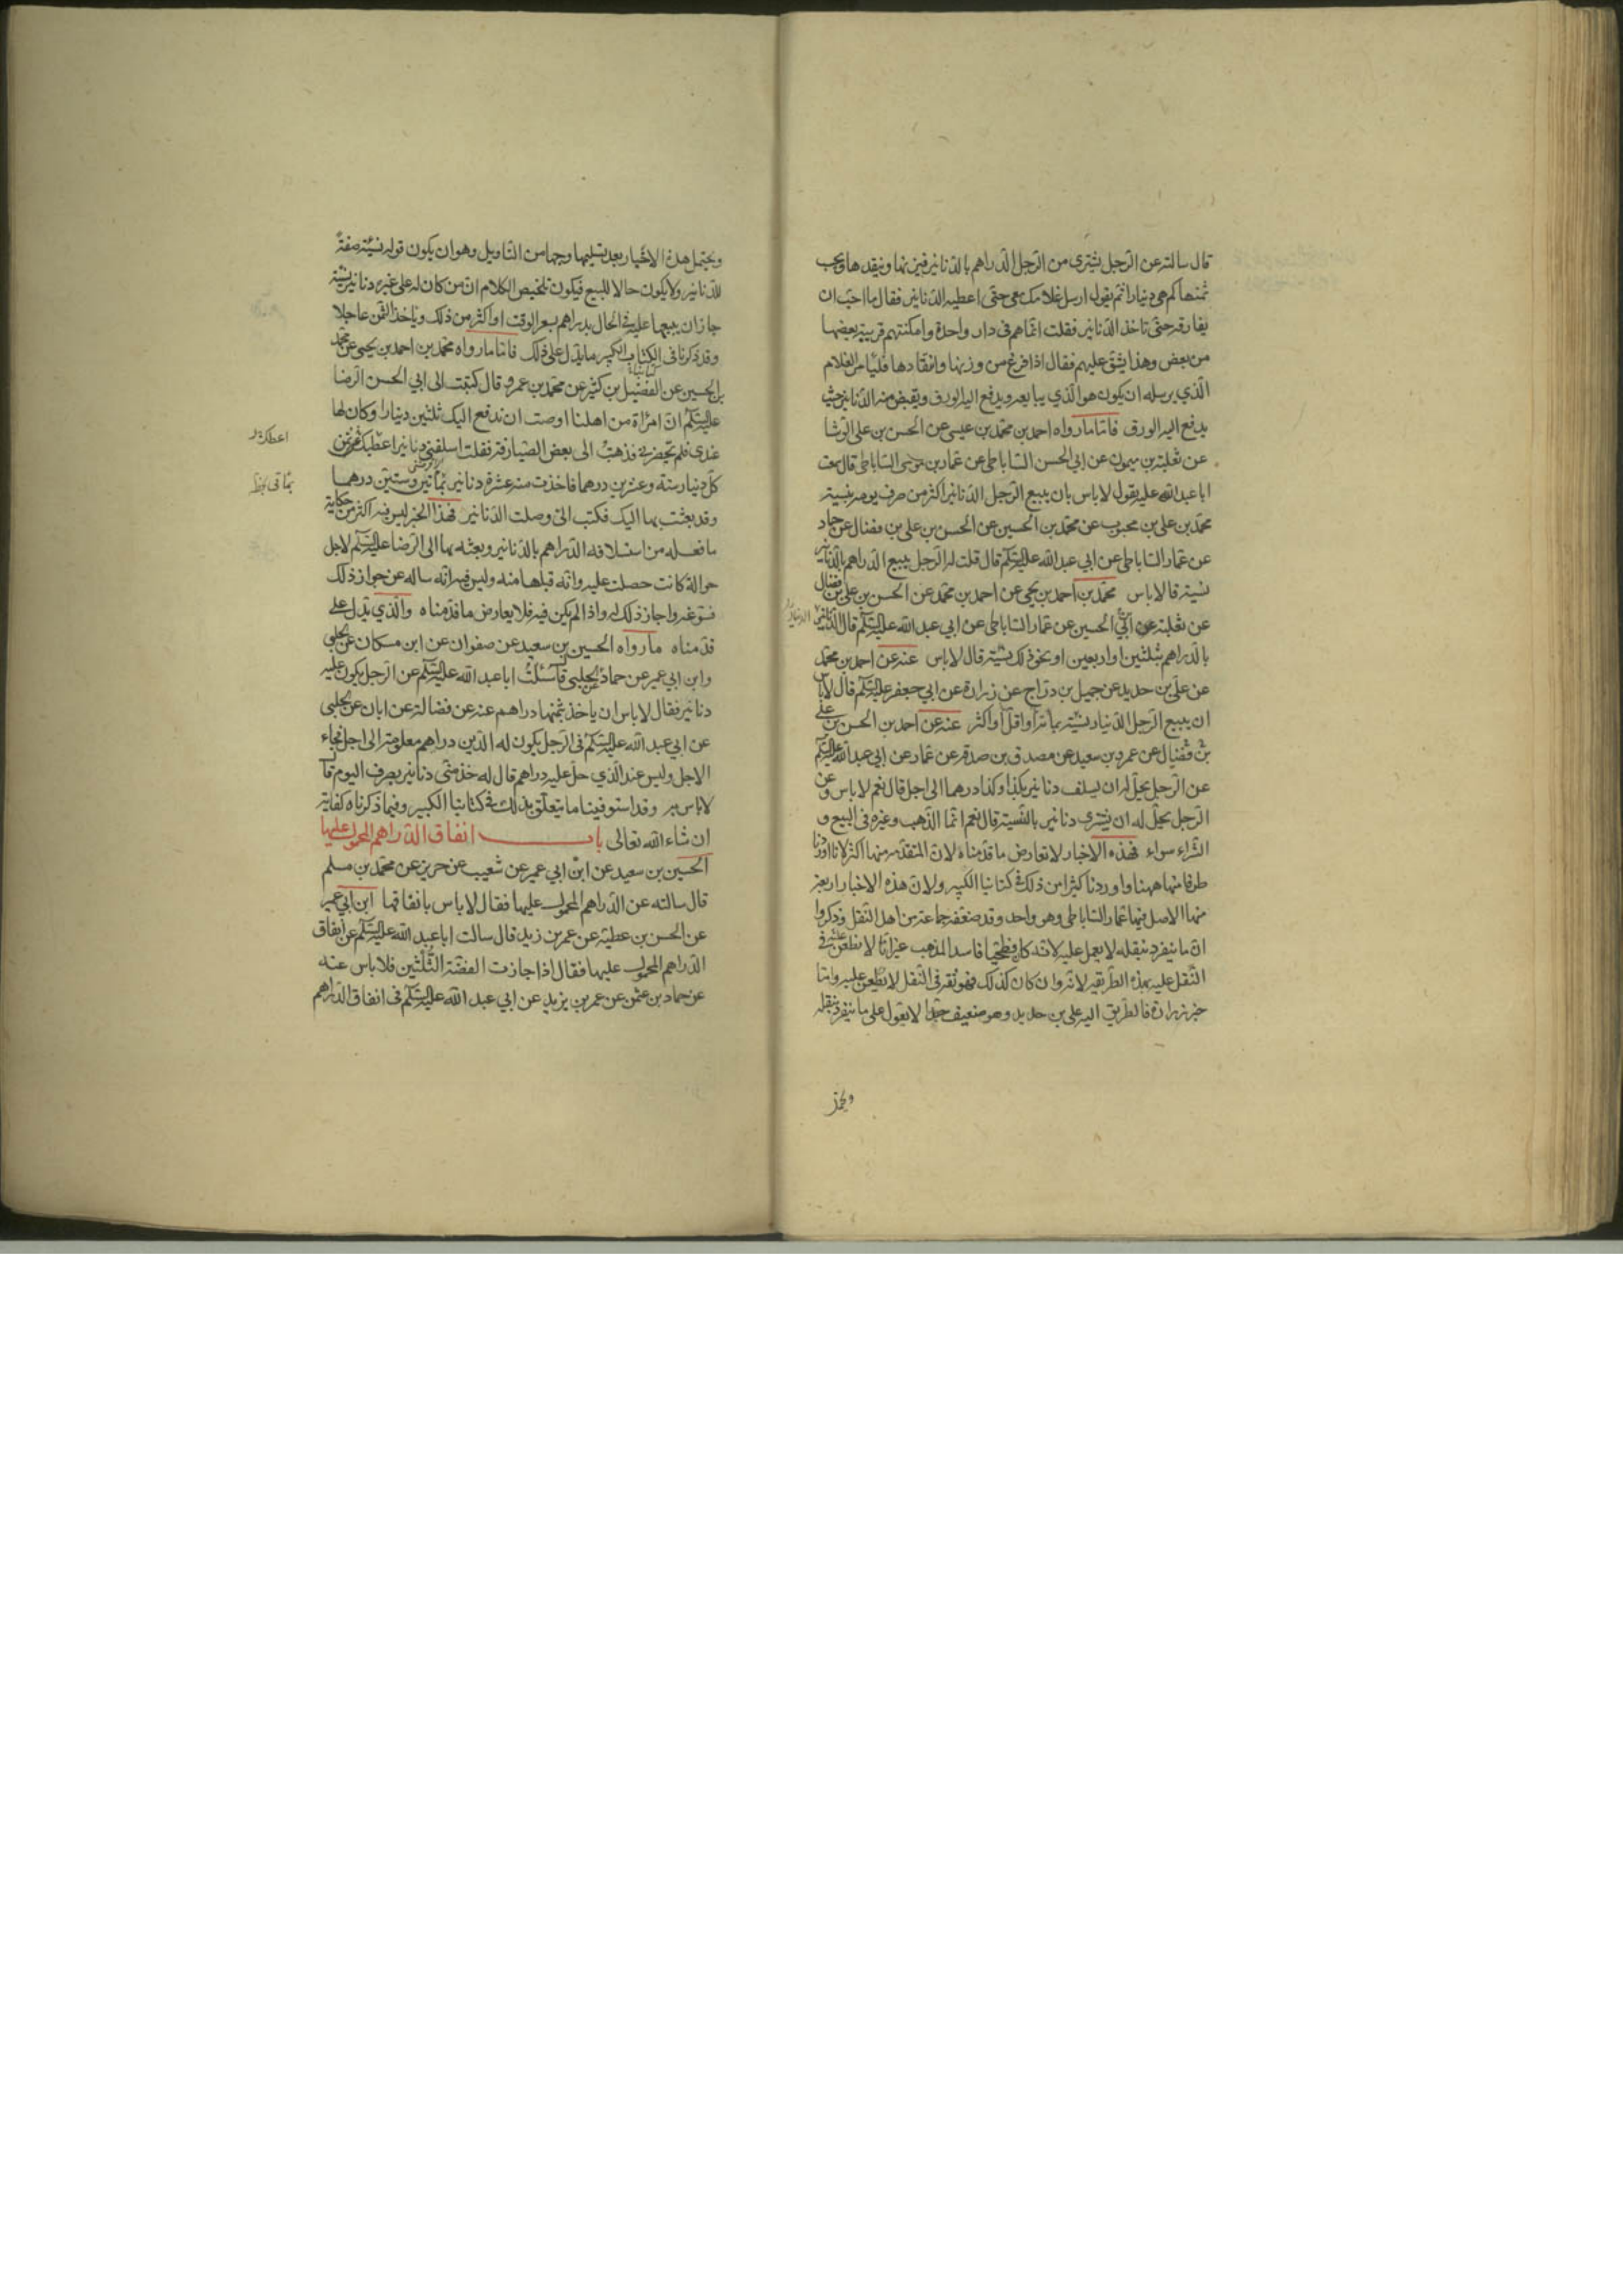 قال سالته عن الرجل يشترى من الرجل الدراهم بالدنانير فيزنها وينقدها ويحسب
ثمنها كم هى دينارا ثم يقول ارسل غلامك معى حتى اعطيه الدنانير فقال ما احب ان
يفارقه حتى تاخذ الدنانير فقلت انما هم فى دار واحدة وامكنتهم قريبة بعضها
من بعض وهذا يشق عليهم فقال اذا فرغ من وزنها وانقادها فليامر الغلام
الذي يرسله ان يكون هو الذي يبايعه ويدفع اليه الورق ويقبض منه الدنانير حيث
يدفع اليه الورق فاما ما رواه احمد بن محمد بن عيسى عن الحسن بن على الوشا
عن ثعلبة بن ميمون عن ابي الحسن الساباطى عن عمار بن موسى الساباطى قال سمعت
ابا عبد الله عليه يقول لا باس بان يبيع الرجل الدنانير اكثر من صرف يومه نسية
محمد بن على بن محبوب عن محمد بن الحسين عن الحسن بن على بن فضال عن حماد
عن عمار الساباطى عن ابي عبد الله عليه السلم قال قلت له الرجل يبيع الدراهم بالدنانير
نسية قال لا باس محمد بن احمد بن يحيى عن احمد بن محمد عن الحسن بن على بن فضال
عن ثعلبة عن ابي الحسين عن عمار الساباطى عن ابي عبد الله عليه السلم قال الدنانير
الدنانير
بالدراهم بثلثين او اربعين او نحو ذلك نسية قال لا باس عنه عن احمد بن محمد
عن على بن حديد عن جميل بن دراج عن زرارة عن ابي جعفر عليه السلم قال لا باس
ان يبيع الرجل الدينار نسية بمائة او اقل او اكثر عنه عن احمد بن الحسن بن على
بن فضال عن عمرو بن سعيد عن مصدق بن صدقة عن عمار عن ابي عبد الله عليه السلم
عن الرجل يحل له ان يسلف دنانير بكذا وكذا درهما الى اجل قال نعم لا باس وعن
الرجل يحل له ان يشترى دنانير بالنسية قال نعم انما الذهب وغيره فى البيع و
الشراء سواء فهذه الاخبار لا تعارض ما قدمناه لان المتقدمة منها اكثر لانا اوردنا
طرفا منها ههنا واوردنا كثيرا من ذلك فى كتابنا الكبير ولان هذه الاخبار اربعة
منها الاصل فيها عمار الساباطى وهو واحد وقد ضعفه جماعة من اهل النقل وذكروا
ان ما ينفرد بنقله لا يعمل عليه لانه كان فطحيا فاسد المذهب غير انا لا نطعن عليه فى
النقل عليه بهذه الطريقة لانه وان كان كذلك فهو ثقة فى النقل لا يطعن عليه واما
خبر زرارة فالطريق اليه على بن حديد وهو ضعيف جدا لا يعول على ما ينفرد بنقله
ويحتمل هذه الاخبار بعد تسليمها وجها من التاويل وهو ان يكون قوله نسية صفة
للدنانير ولا يكون حالا للبيع فيكون تلخيص الكلام ان من كان له على غيره دنانير نسية
جاز ان يبيعها عليه فى الحال بدراهم بسعر الوقت او اكثر من ذلك وياخذ الثمن عاجلا
وقد ذكرنا فى الكتاب الكبير ما يدل على ذلك فاما ما رواه محمد بن احمد بن يحيى عن محمد
بن الحسين عن الفضيل بن كثير عن محمد بن عمرو قال كتبت الى ابي الحسن الرضا
عليه السلم ان امراة من اهلنا اوصت ان ندفع اليك ثلثين دينارا وكان لها
عندى فلم يحضرنى فذهبت الى بعض الصيارفة فقلت اسلفنى دنانير اعطيك ثمن
كل دينار ستة وعشرين درهما فاخذت منه عشرة دنانير بمأتين وستين درهما
وقد بعثت بها اليك فكتب الى وصلت الدنانير فهذا الخبر ليس فيه اكثر من حكاية
ما فعله من استلافه الدراهم بالدنانير وبعثه بها الى الرضا عليه السلم لاجل
حوالة كانت حصلت عليه وانه قبلها منه وليس فيه انه ساله عن جواز ذلك
فسوغه واجاز ذلك له واذا لم يكن فيه فلا يعارض ما قدمناه والذي يدل على
قدمناه ما رواه الحسين بن سعيد عن صفوان عن ابن مسكان عن الحلبى
وابن ابي عمير عن حماد عن الحلبى قال سئلت ابا عبد الله عليه السلم عن الرجل يكون عليه
دنانير فقال لا باس ان ياخذ بثمنها دراهم عنه عن فضالة عن ابان عن الحلبى
عن ابي عبد الله عليه السلم فى الرجل يكون له الدين دراهم معلومة الى اجل فجاء
الاجل وليس عند الذي حل عليه دراهم قال له خذ منى دنانير بصرف اليوم قال
لا باس به وقد استوفينا ما يتعلق بذلك فى كتابنا الكبير وفيما ذكرناه كفاية
ان شاء الله تعالى باب انفاق الدراهم المحمول عليها
الحسين بن سعيد عن ابن ابي عمير عن شعيب عن حريز عن محمد بن مسلم
قال سالته عن الدراهم المحمول عليها فقال لا باس بانفاقها ابن ابي عمير
عن الحسن بن عطية عن عمر بن زيد قال سالت ابا عبد الله عليه السلم عن انفاق
الدراهم المحمول عليها فقال اذا جازت الفضة الثلثين فلا باس عنه
عن حماد بن عثمن عن عمر بن يزيد عن ابي عبد الله عليه السلم فى انفاق الدراهم